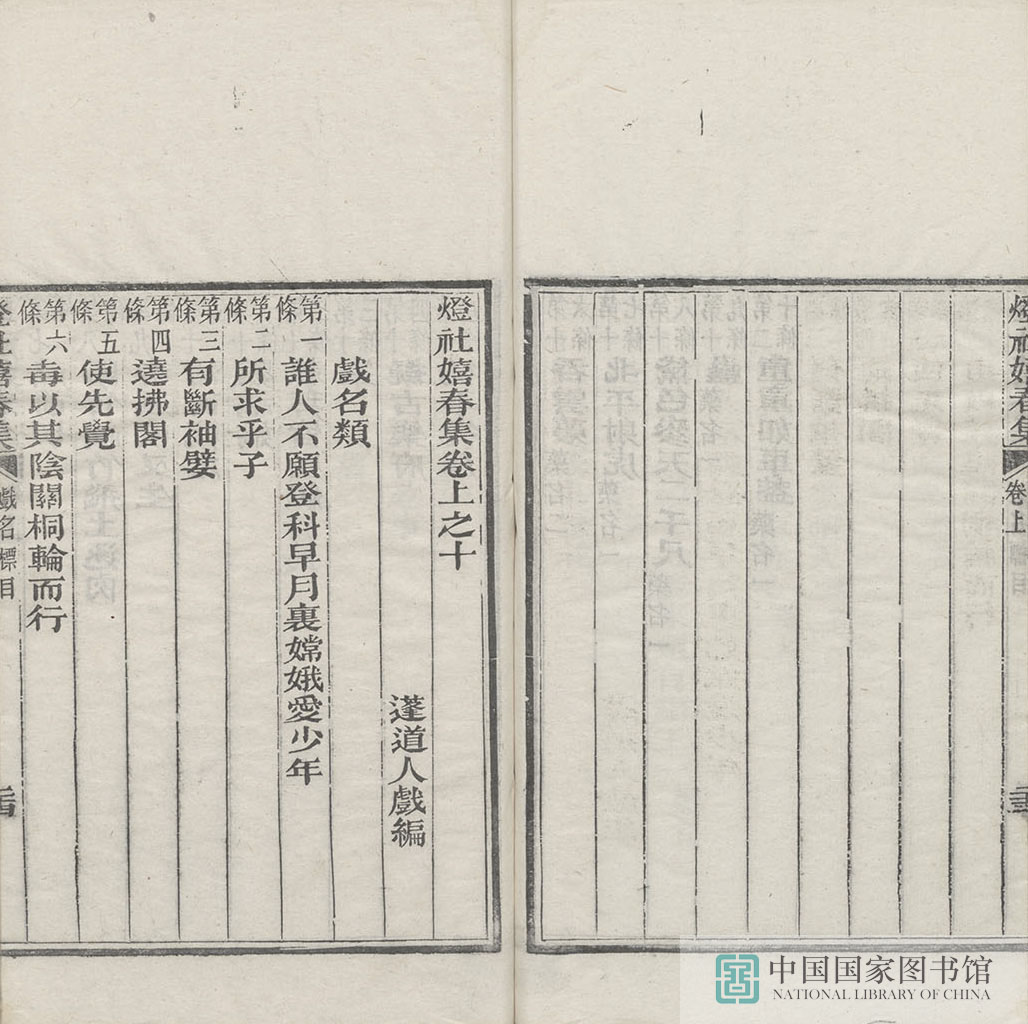 燈社嬉春集 卷上
燈社嬉春集卷上之十
蓬道人戲編
戲名類
第一條 誰人不願登科早月裏嫦娥愛少年
第二條 所求乎子
第三條 有斷袖嬖
第四條 遶拂閣
第五條 使先覺
第六條 毒以其陰關桐輪而行
燈社嬉春集 戲名標目
中国国家图书馆
NATIONAL LIBRARY OF CHINA